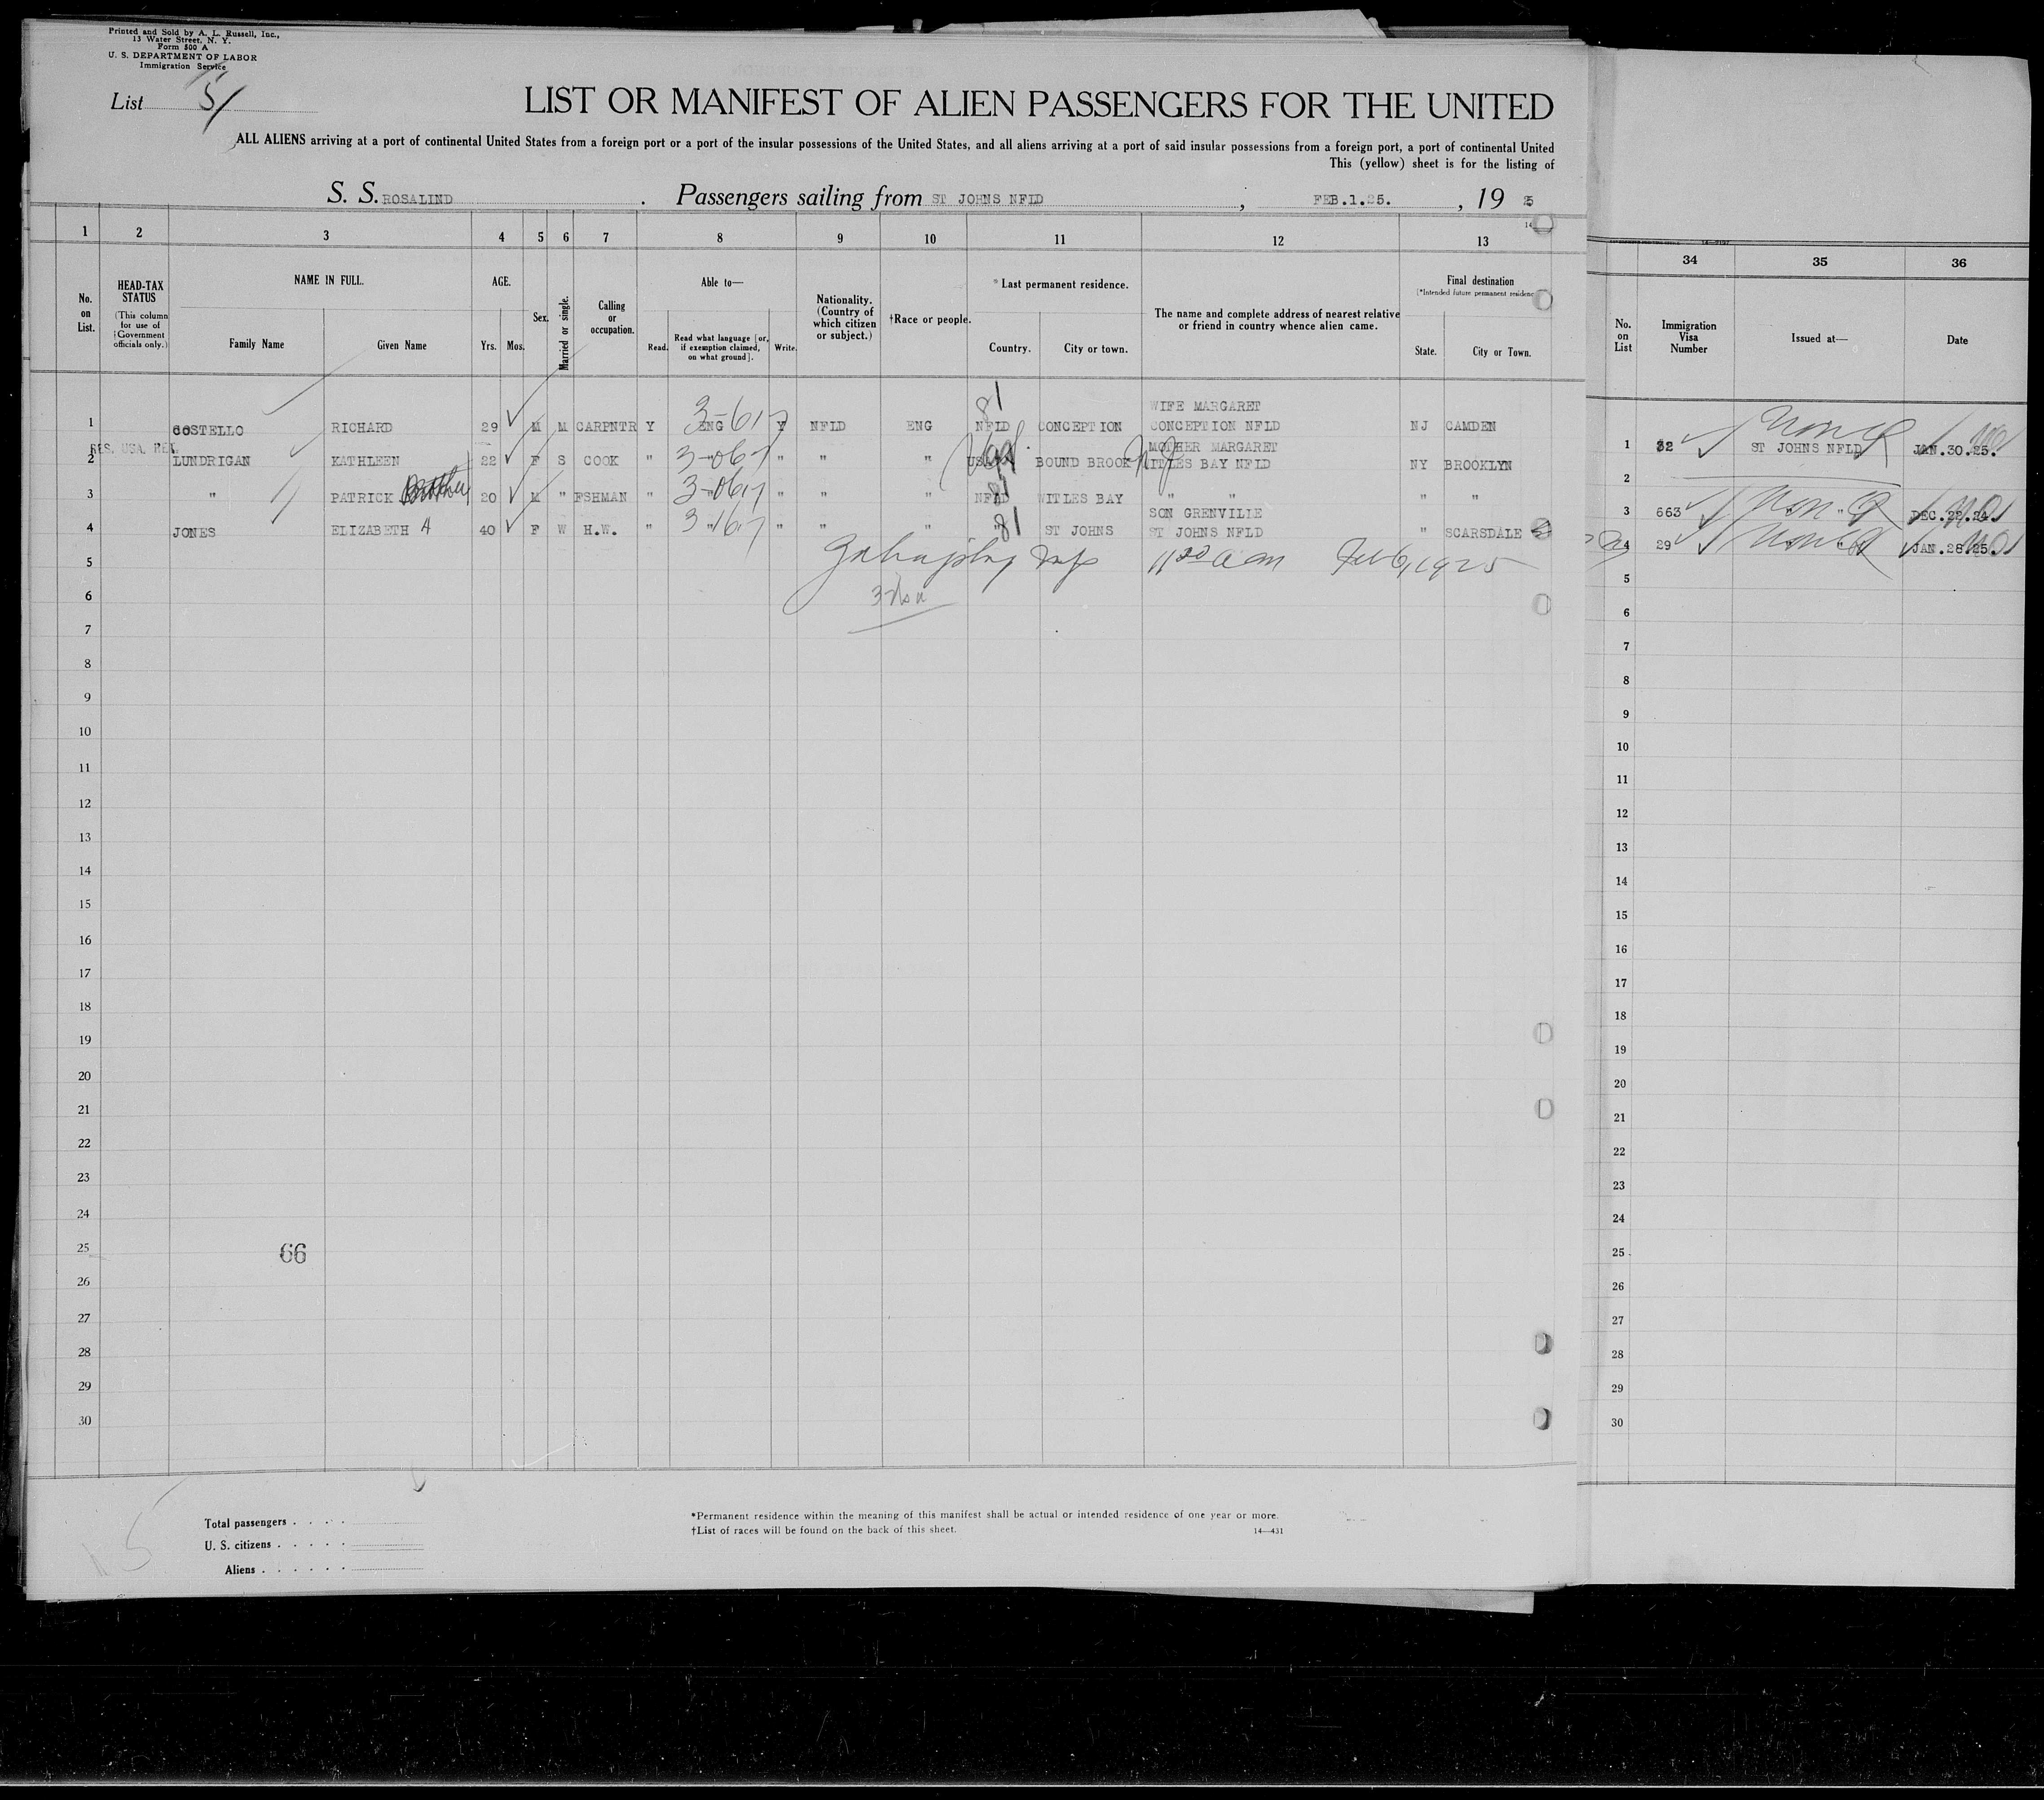 Printed and Sold by A. L. Russell, Inc.,
13 Water Street, N. Y.
Form 500 A
U. S. DEPARTMENT OF LABOR
Immigration Service
List 5
LIST OR MANIFEST OF ALIEN PASSENGERS FOR THE UNITED
ALL ALIENS arriving at a port of continental United States from a foreign port or a port of the insular possessions of the United States, and all aliens arriving at a port of said insular possessions from a foreign port, a port of continental United
This (yellow) sheet is for the listing of
S. S. ROSALIND . Passengers sailing from ST JOHNS NFLD , FEB.1.25. , 19 25
1 2 3 4 5 6 7 8 9 10 11 12 13
No. on List.
HEAD-TAX STATUS
(This column for use of Government officials only.)
NAME IN FULL.
Family Name
Given Name
AGE.
Yrs. Mos.
Sex.
Married or single.
Calling or occupation.
Able to—
Read.
Read what language [or, if exemption claimed, on what ground].
Write.
Nationality. (Country of which citizen or subject.)
†Race or people.
*Last permanent residence.
Country.
City or town.
The name and complete address of nearest relative or friend in country whence alien came.
Final destination
(*Intended future permanent residence
State.
City or Town.
WIFE MARGARET
1 COSTELLO RICHARD 29 M M CARPNTR Y ENG Y NFLD ENG NFLD CONCEPTION CONCEPTION NFLD NJ CAMDEN
3-617 81
RES. USA. REL.
MOTHER MARGARET
2 LUNDRIGAN KATHLEEN 22 F S COOK " " " " " BOUND BROOK NJ WITLES BAY NFLD NY BROOKLYN
3-067
3 " PATRICK Brother 20 M " FSHMAN " " " " " NFLD WITLES BAY " " " "
3-0617 81
SON GRENVILLE
4 JONES ELIZABETH A 40 F W H.W. " " " " " " ST JOHNS ST JOHNS NFLD " SCARSDALE
3-1617 81
1130 am Feb 6, 1925
5
6
7
8
9
10
11
12
13
14
15
16
17
18
19
20
21
22
23
24
25 66
26
27
28
29
30
Total passengers
U. S. citizens
Aliens
*Permanent residence within the meaning of this manifest shall be actual or intended residence of one year or more.
†List of races will be found on the back of this sheet.
14—431
34 35 36
No. on List
Immigration Visa Number
Issued at—
Date
1 32 ST JOHNS NFLD JAN.30.25.
2
3 663 " " DEC.22.24.
4 29 " " JAN.28.25.
5
6
7
8
9
10
11
12
13
14
15
16
17
18
19
20
21
22
23
24
25
26
27
28
29
30